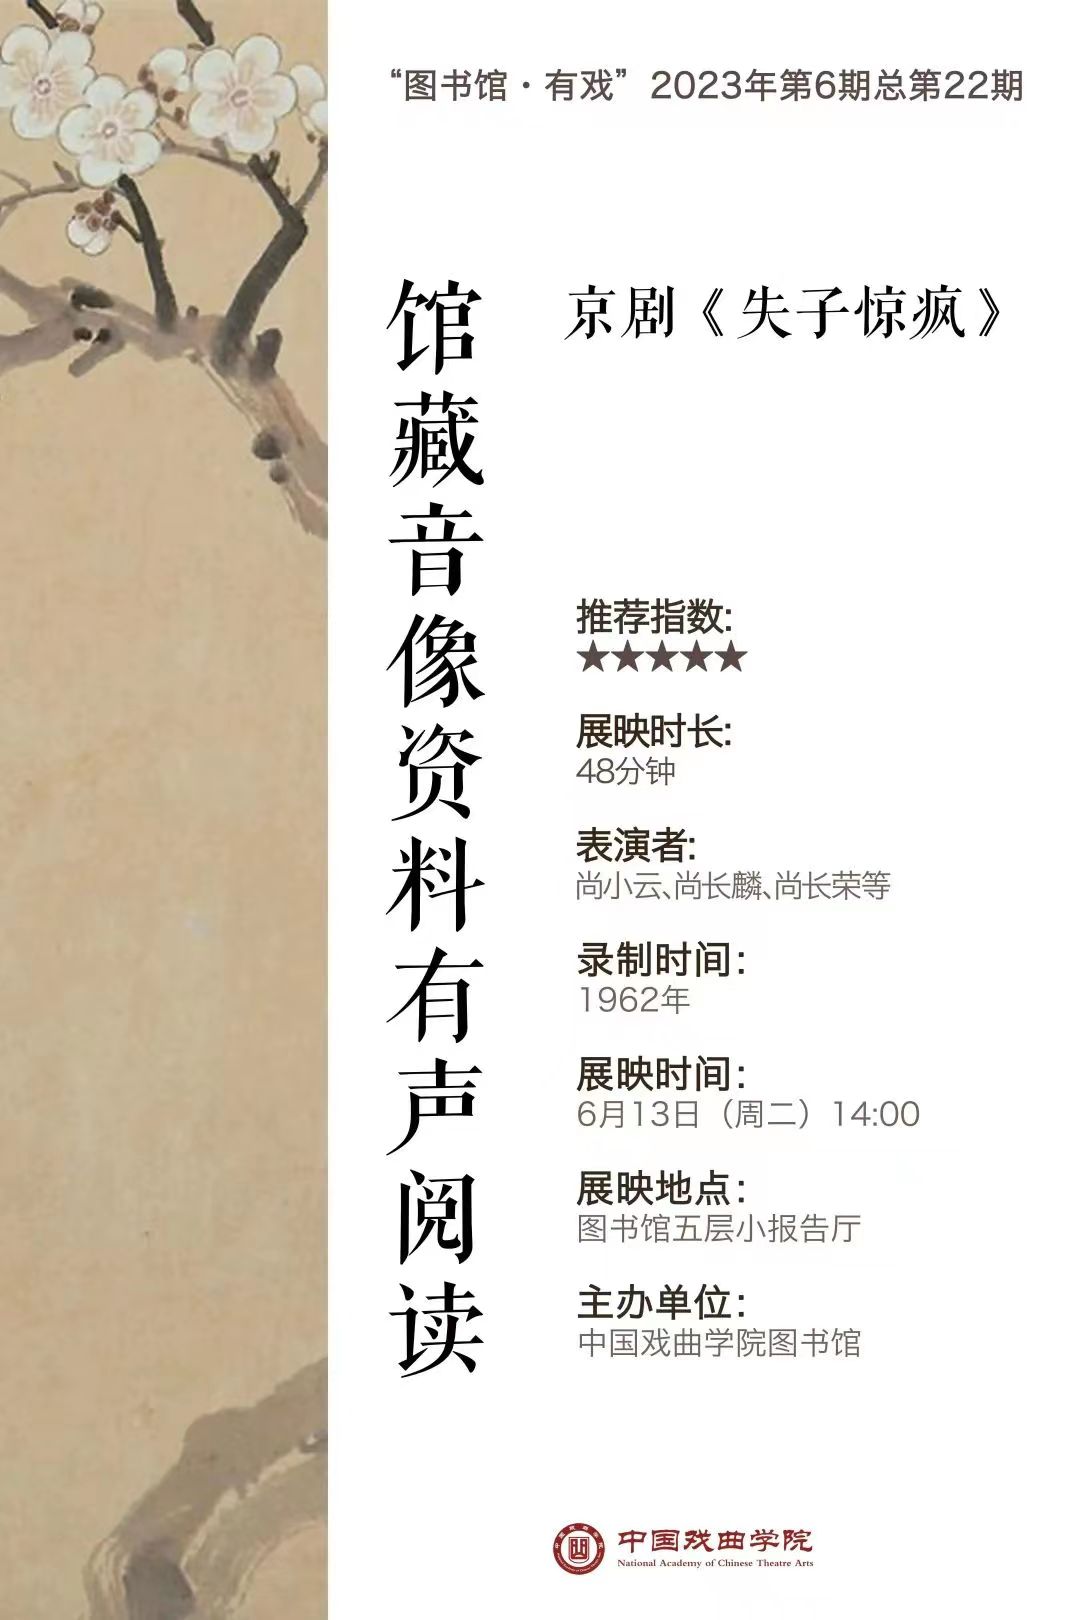 “图书馆·有戏”2023年第6期总第22期
馆藏音像资料有声阅读
京剧《失子惊疯》
推荐指数:
★★★★★
展映时长:
48分钟
表演者:
尚小云、尚长麟、尚长荣等
录制时间:
1962年
展映时间:
6月13日（周二）14:00
展映地点:
图书馆五层小报告厅
主办单位:
中国戏曲学院图书馆
中国戏曲学院
National Academy of Chinese Theatre Arts